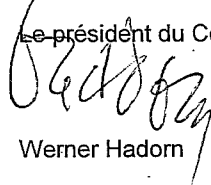 Le président du Co
Werner Hadorn